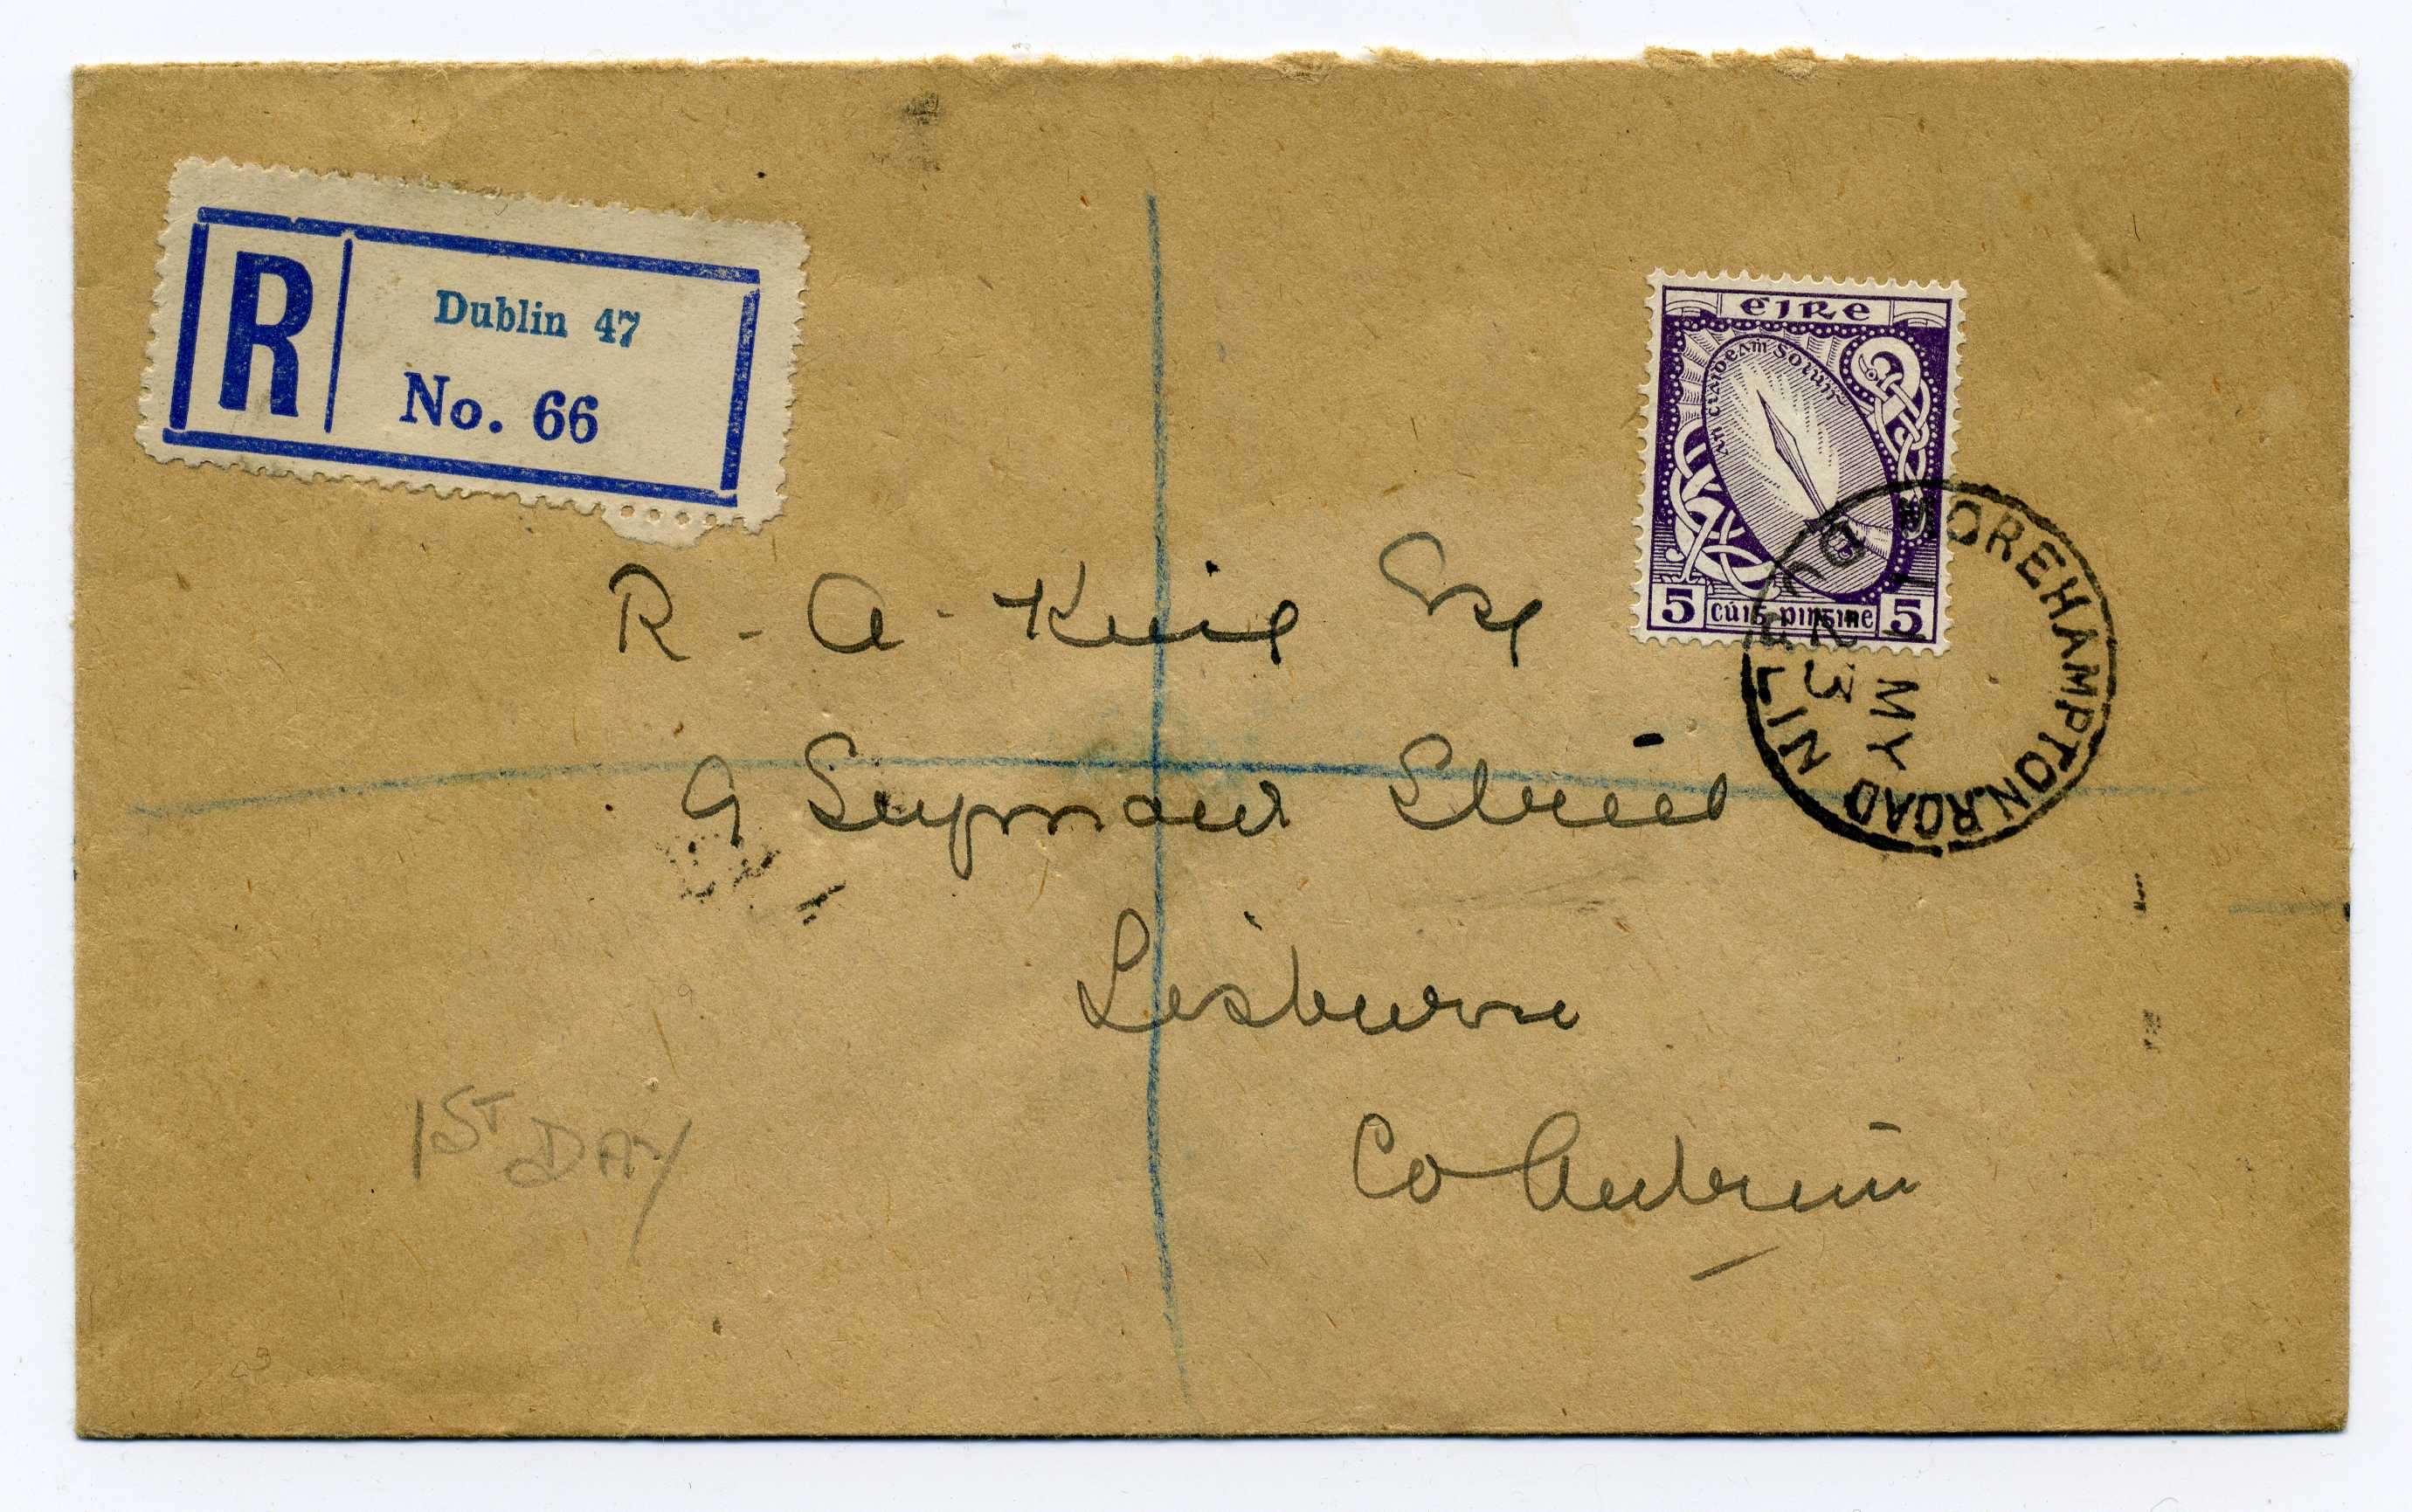 R
Dublin 47
No. 66
éire
An Claiḋeaṁ Soluis
5 cúig pingine 5
MOREHAMPTON ROAD
DUBLIN
23
MY
R. A. King Esq
9 Seymour Street
Lisburn
Co Antrim
1ST DAY